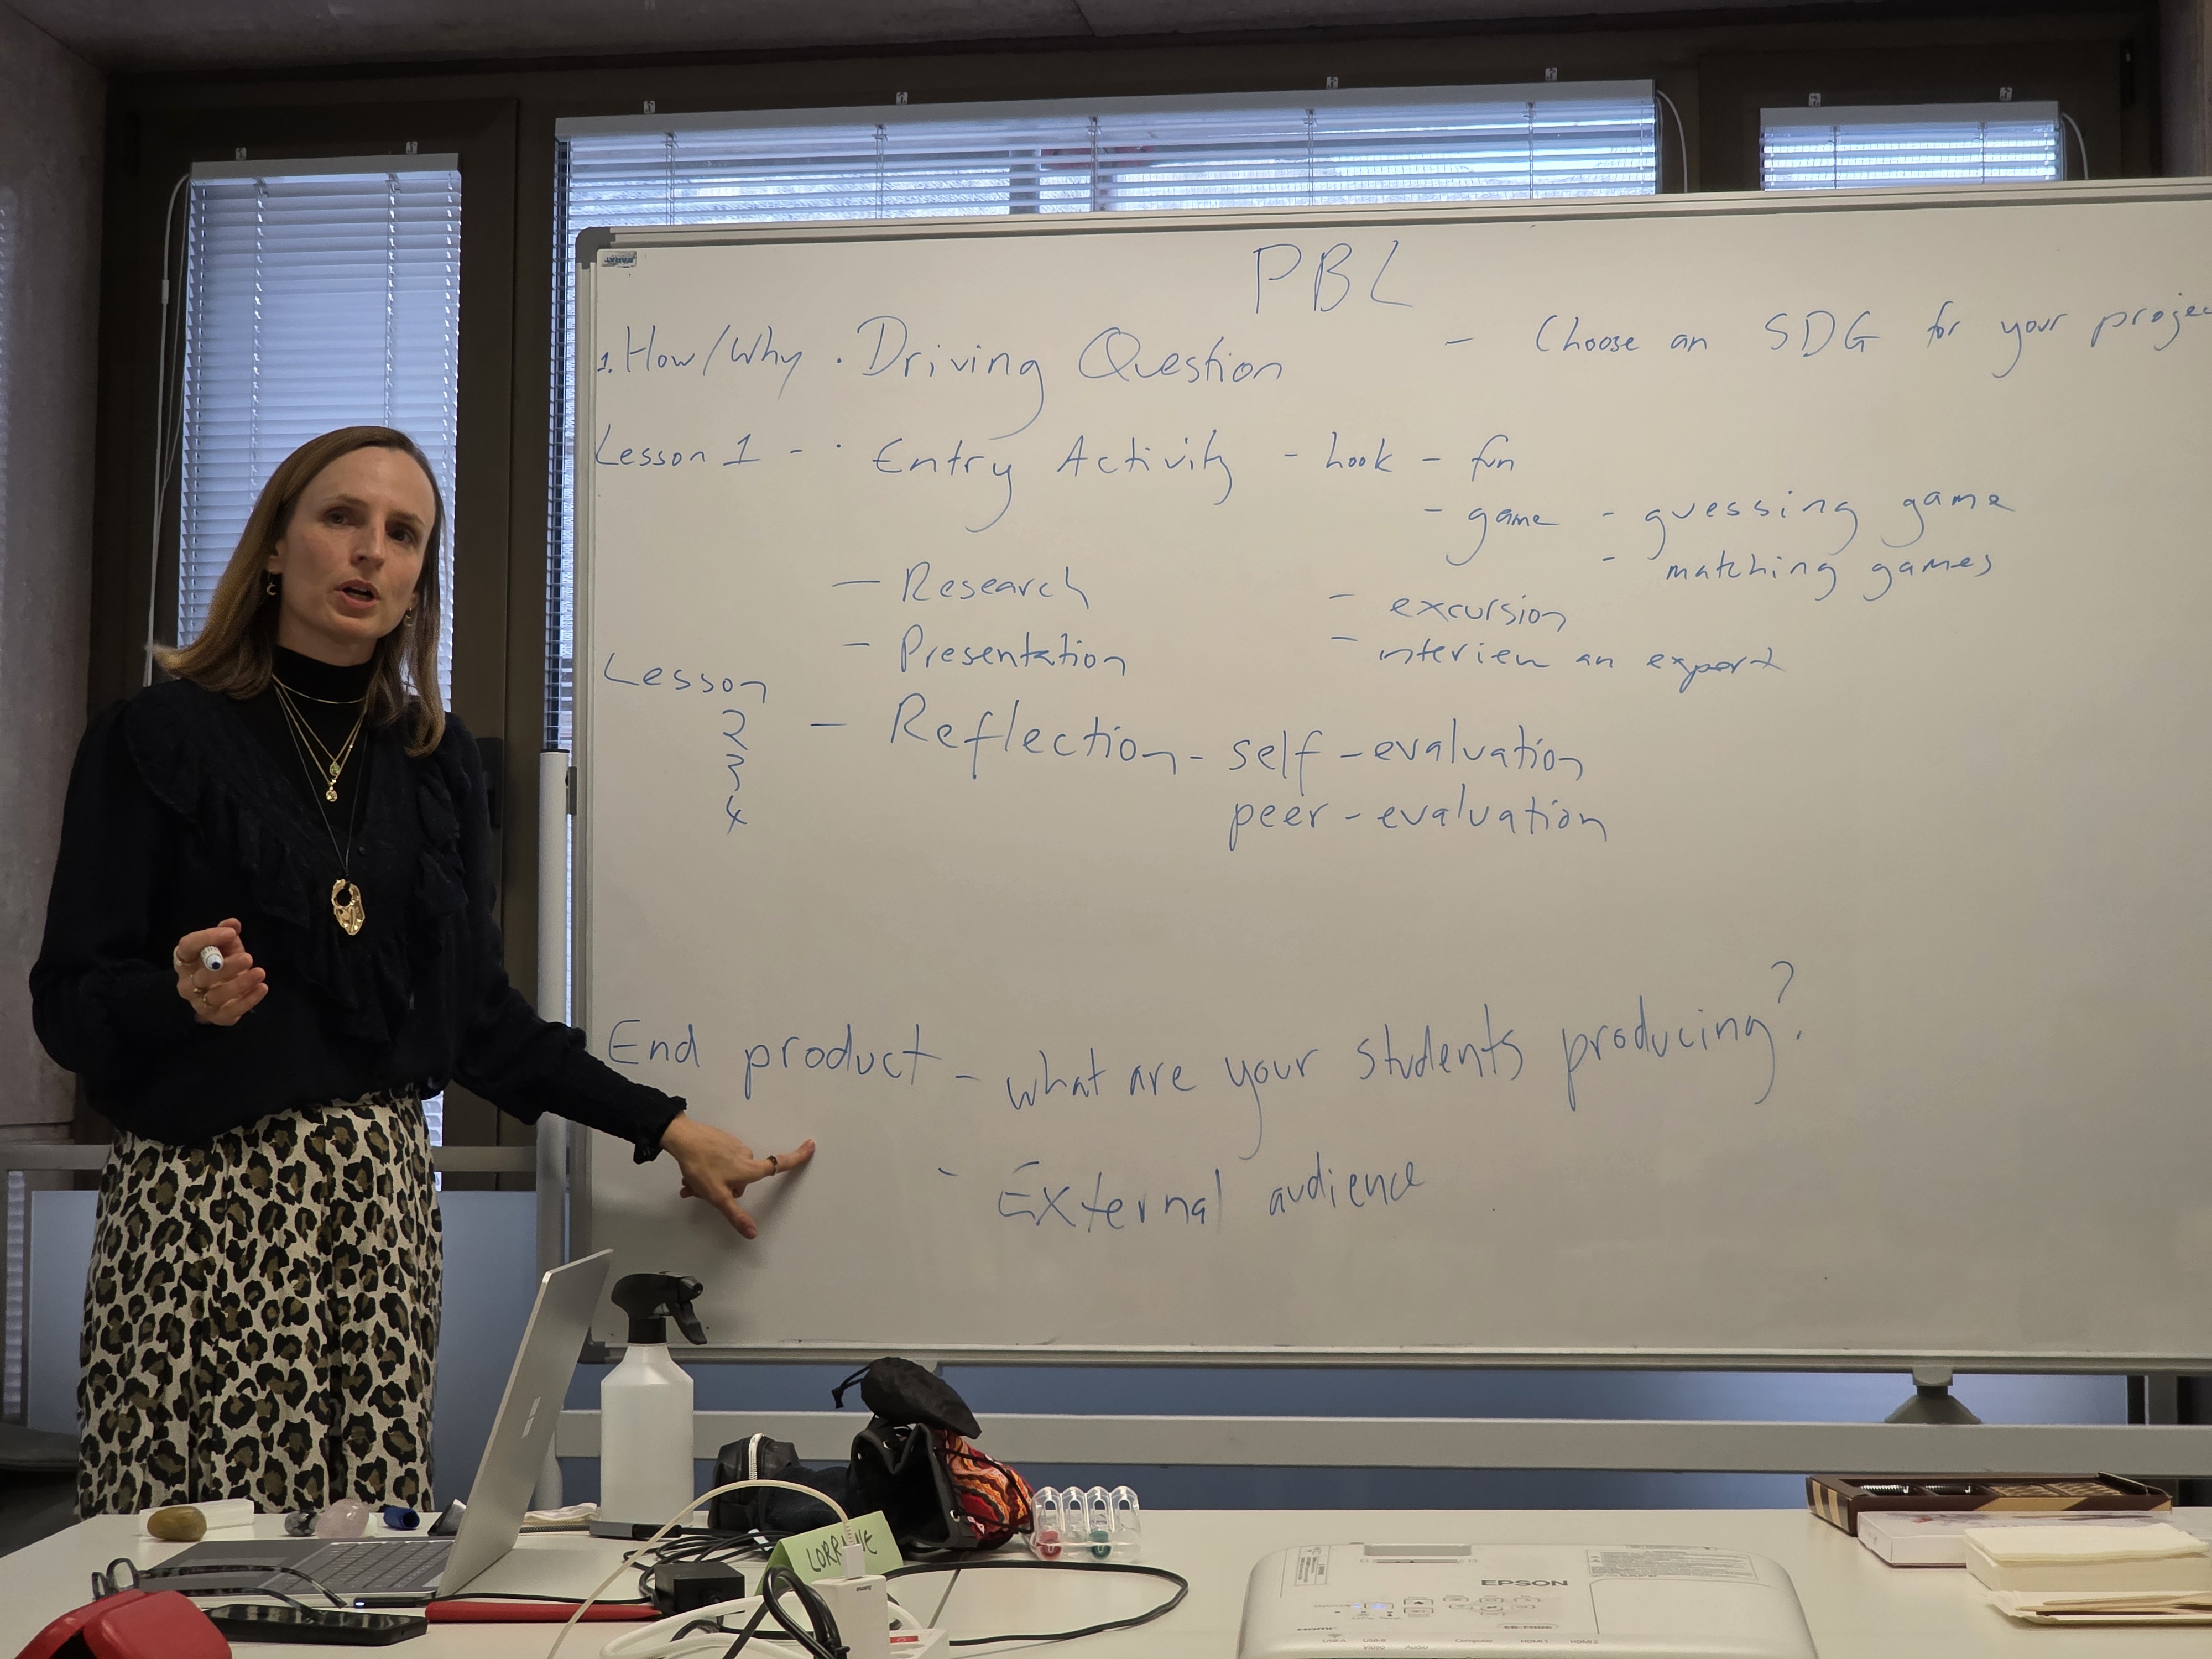 PBL
1. How/Why · Driving Question - Choose an SDG for your projec
Lesson 1 - · Entry Activity - hook - fun
- game - guessing game
- matching games
- Research
- excursion
- Presentation
- interview an expert
Lesson
2 - Reflection - self-evaluation
3
4 peer-evaluation
End product - what are your students producing?
- External audience
LORRAINE
EPSON
USB-A
USB-B
Audio
Computer
HDMI 1
HDMI 2